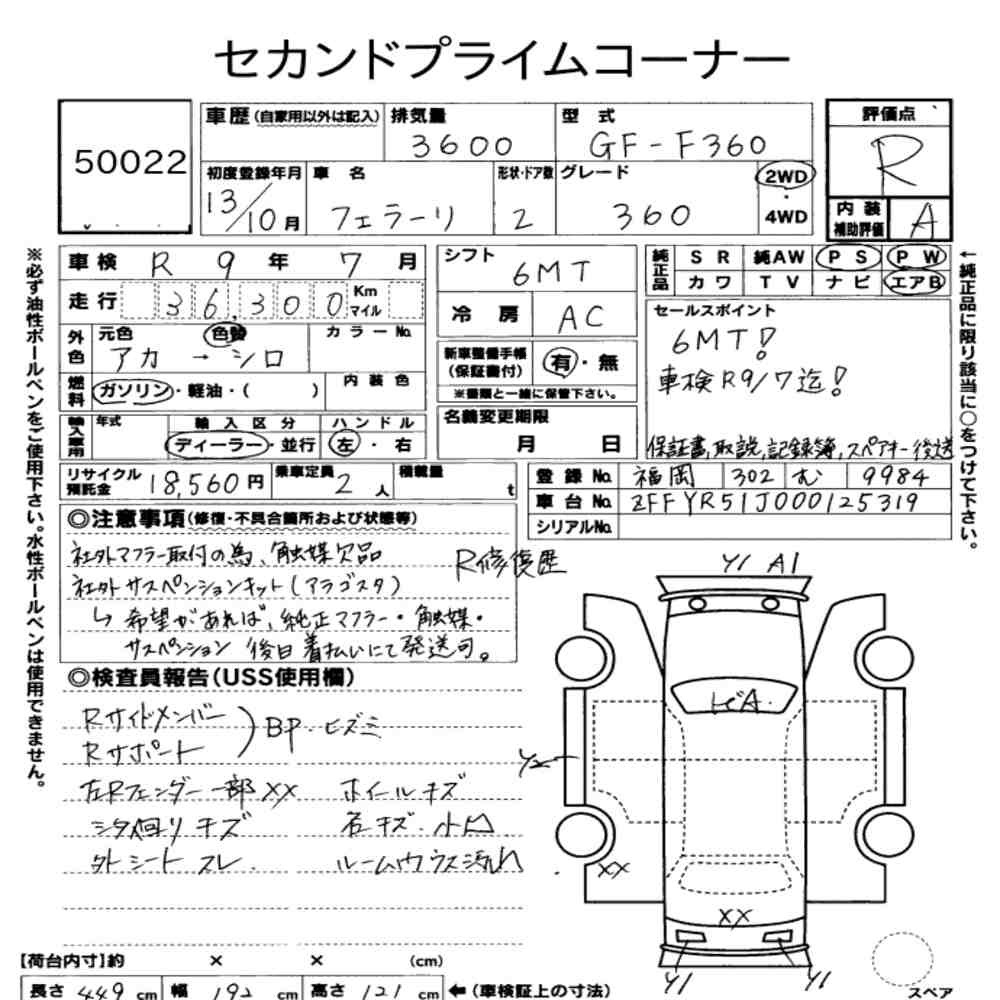 セカンドプライムコーナー
50022
車歴 (自家用以外は記入) 排気量 3600 型式 GF-F360
初度登録年月 13/10月 車名 フェラーリ 形状・ドア数 2 グレード 360 2WD・4WD
評価点 R
内装補助評価 A
車検 R 9年 7月
走行 36,300 Km マイル
シフト 6MT
冷房 AC
純正品 SR 純AW PS PW
カワ TV ナビ エアB
外色 元色 アカ → 色替 シロ カラーNo.
燃料 ガソリン・軽油・( ) 内装色
新車整備手帳(保証書付) 有・無
※書類と一緒に保管下さい。
セールスポイント
6MT!
車検R9/7迄!
保証書,取説,記録簿,スペアキー後送
輸入車用 年式 輸入区分 ディーラー・並行 ハンドル 左・右
名義変更期限 月 日
リサイクル預託金 18,560円 乗車定員 2人 積載量 t
登録No. 福岡 302 む 9984
車台No. ZFFYR51J000125319
シリアルNo.
◎注意事項(修復・不具合箇所および状態等)
社外マフラー取付の為、触媒欠品
社外サスペンションキット(アラゴスタ)
↳ 希望があれば、純正マフラー・触媒・
サスペンション 後日着払いにて発送可。
R修復歴
◎検査員報告(USS使用欄)
Rサイドメンバー
Rサポート
BP・ヒズミ
左Rフェンダー一部XX ホイールキズ
シタ回りキズ 石キズ・小凹
外シートスレ. ルームウラス汚れ
Y1 A1
ヒA.
Y2
XX
XX
Y1 Y1
スペア
【荷台内寸】約 × × (cm)
長さ 449 cm 幅 192 cm 高さ 121 cm ←(車検証上の寸法)
※必ず油性ボールペンをご使用下さい。水性ボールペンは使用できません。
←純正品に限り該当に○をつけて下さい。